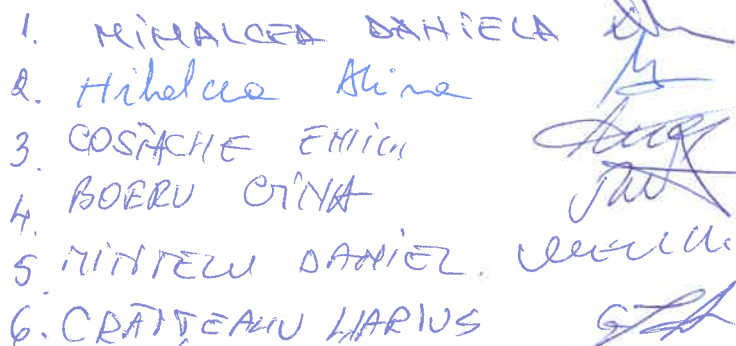 1. MIHALCEA DANIELA
2. Mihalcea Alina
3. COSTACHE EMIL
4. BOERU GINA
5. MINTELU DANIEL
6. CRĂIȚEANU MARIUS